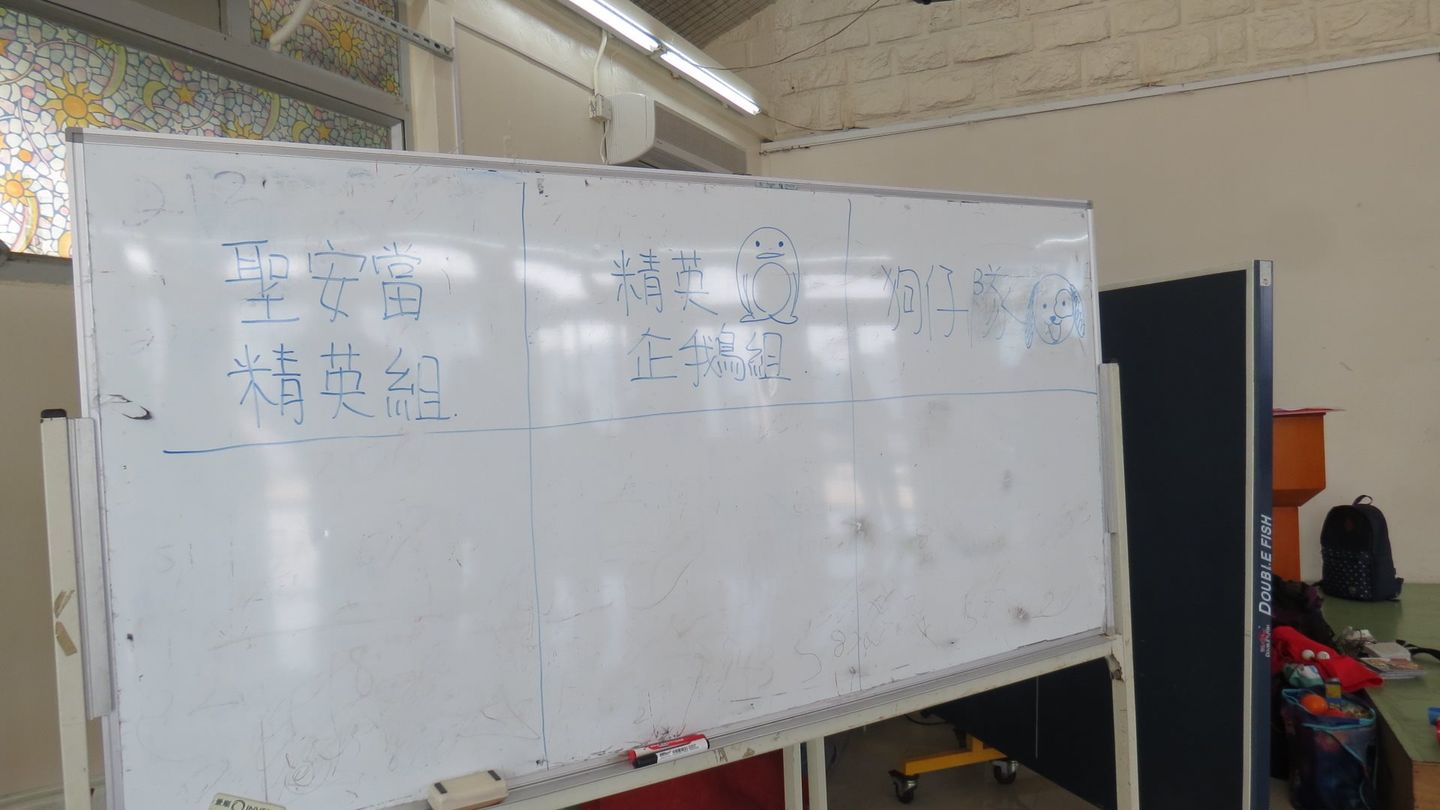 聖安當
精英組.
精英
企鵝組.
狗仔隊
DOUBLE FISH